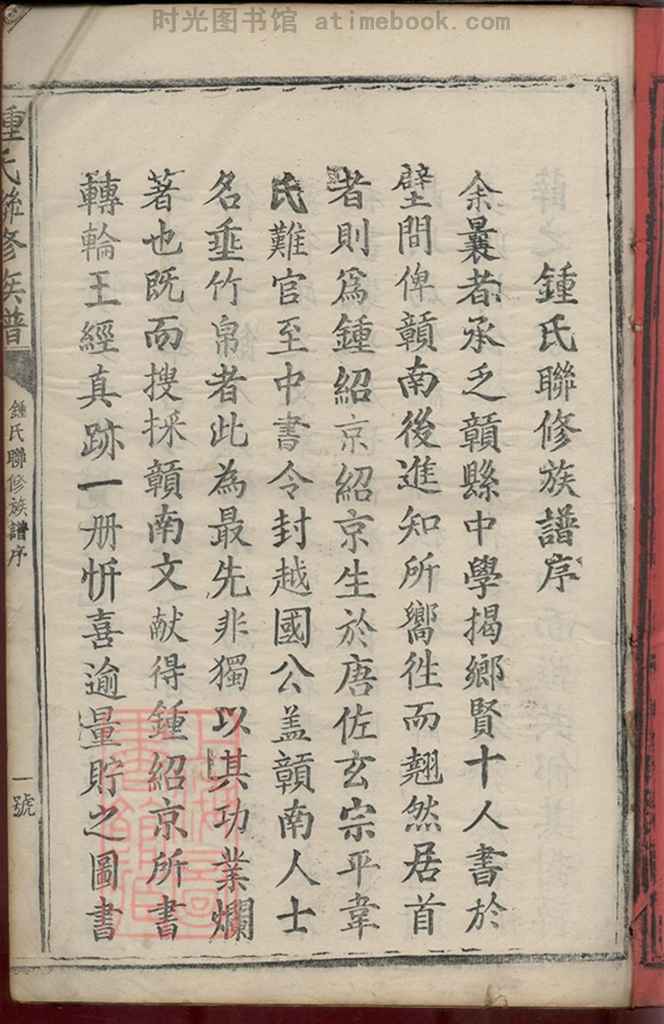 时光图书馆 atimebook.com
鍾氏聯修族譜序
余曩者承乏贛縣中學揭鄉賢十人書於
壁間俾贛南後進知所嚮徃而翹然居首
者則爲鍾紹京紹京生於唐佐玄宗平韋
氏難官至中書令封越國公盖贛南人士
名垂竹帛者此為最先非獨以其功業爛
著也既而搜採贛南文献得鍾紹京所書
轉輪王經真跡一册忻喜逾量貯之圖書
鍾氏聯修族譜
鍾氏聯修族譜序
一號